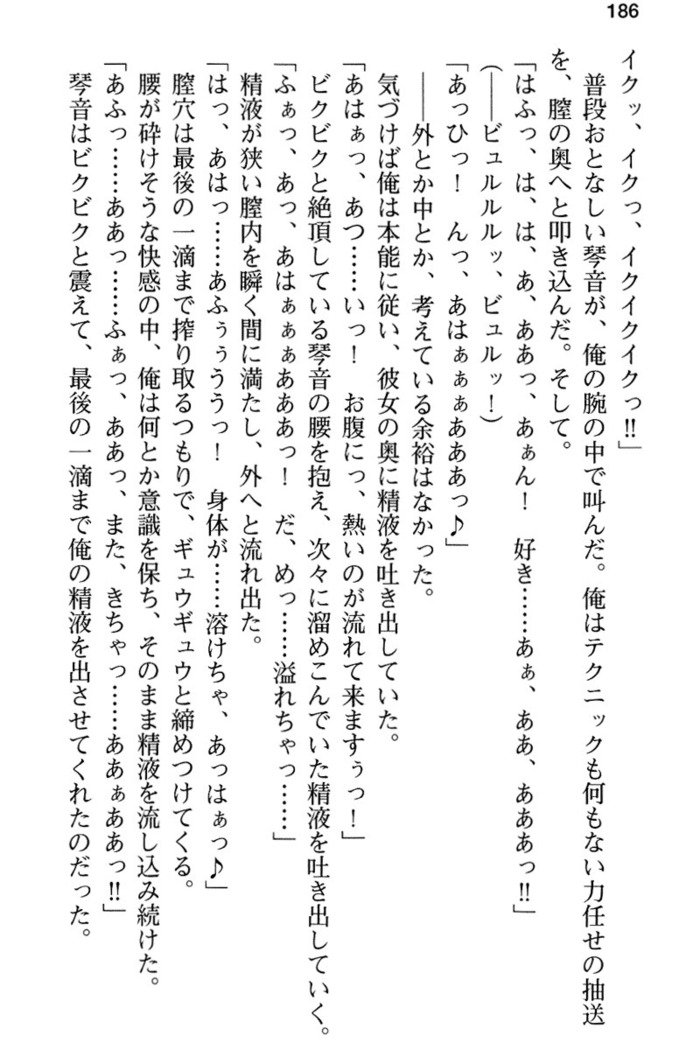 186
イクッ、イクっ、イクイクイクっ!!」
普段おとなしい琴音が、俺の腕の中で叫んだ。俺はテクニックも何もない力任せの抽送
を、膣の奥へと叩き込んだ。そして。
「はふっ、は、は、あ、ああっ、あぁん！　好き……あぁ、ああ、あああっ!!」
(――ビュルルルッ、ビュルッ！)
「あっひっ！　んっ、あはぁぁぁあああっ♪」
――外とか中とか、考えている余裕はなかった。
気づけば俺は本能に従い、彼女の奥に精液を吐き出していた。
「あはぁっ、あつ……いっ！　お腹にっ、熱いのが流れて来ますぅっ！」
ビクビクと絶頂している琴音の腰を抱え、次々に溜めこんでいた精液を吐き出していく。
「ふぁっ、あっ、あはぁぁぁあああっ！　だ、めっ……溢れちゃっ……」
精液が狭い膣内を瞬く間に満たし、外へと流れ出た。
「はっ、あはっ……あふぅぅううっ！　身体が……溶けちゃ、あっはぁっ♪」
膣穴は最後の一滴まで搾り取るつもりで、ギュウギュウと締めつけてくる。
腰が砕けそうな快感の中、俺は何とか意識を保ち、そのまま精液を流し込み続けた。
「あふっ……ああっ……ふぁっ、ああっ、また、きちゃっ……ああぁああっ!!」
琴音はビクビクと震えて、最後の一滴まで俺の精液を出させてくれたのだった。